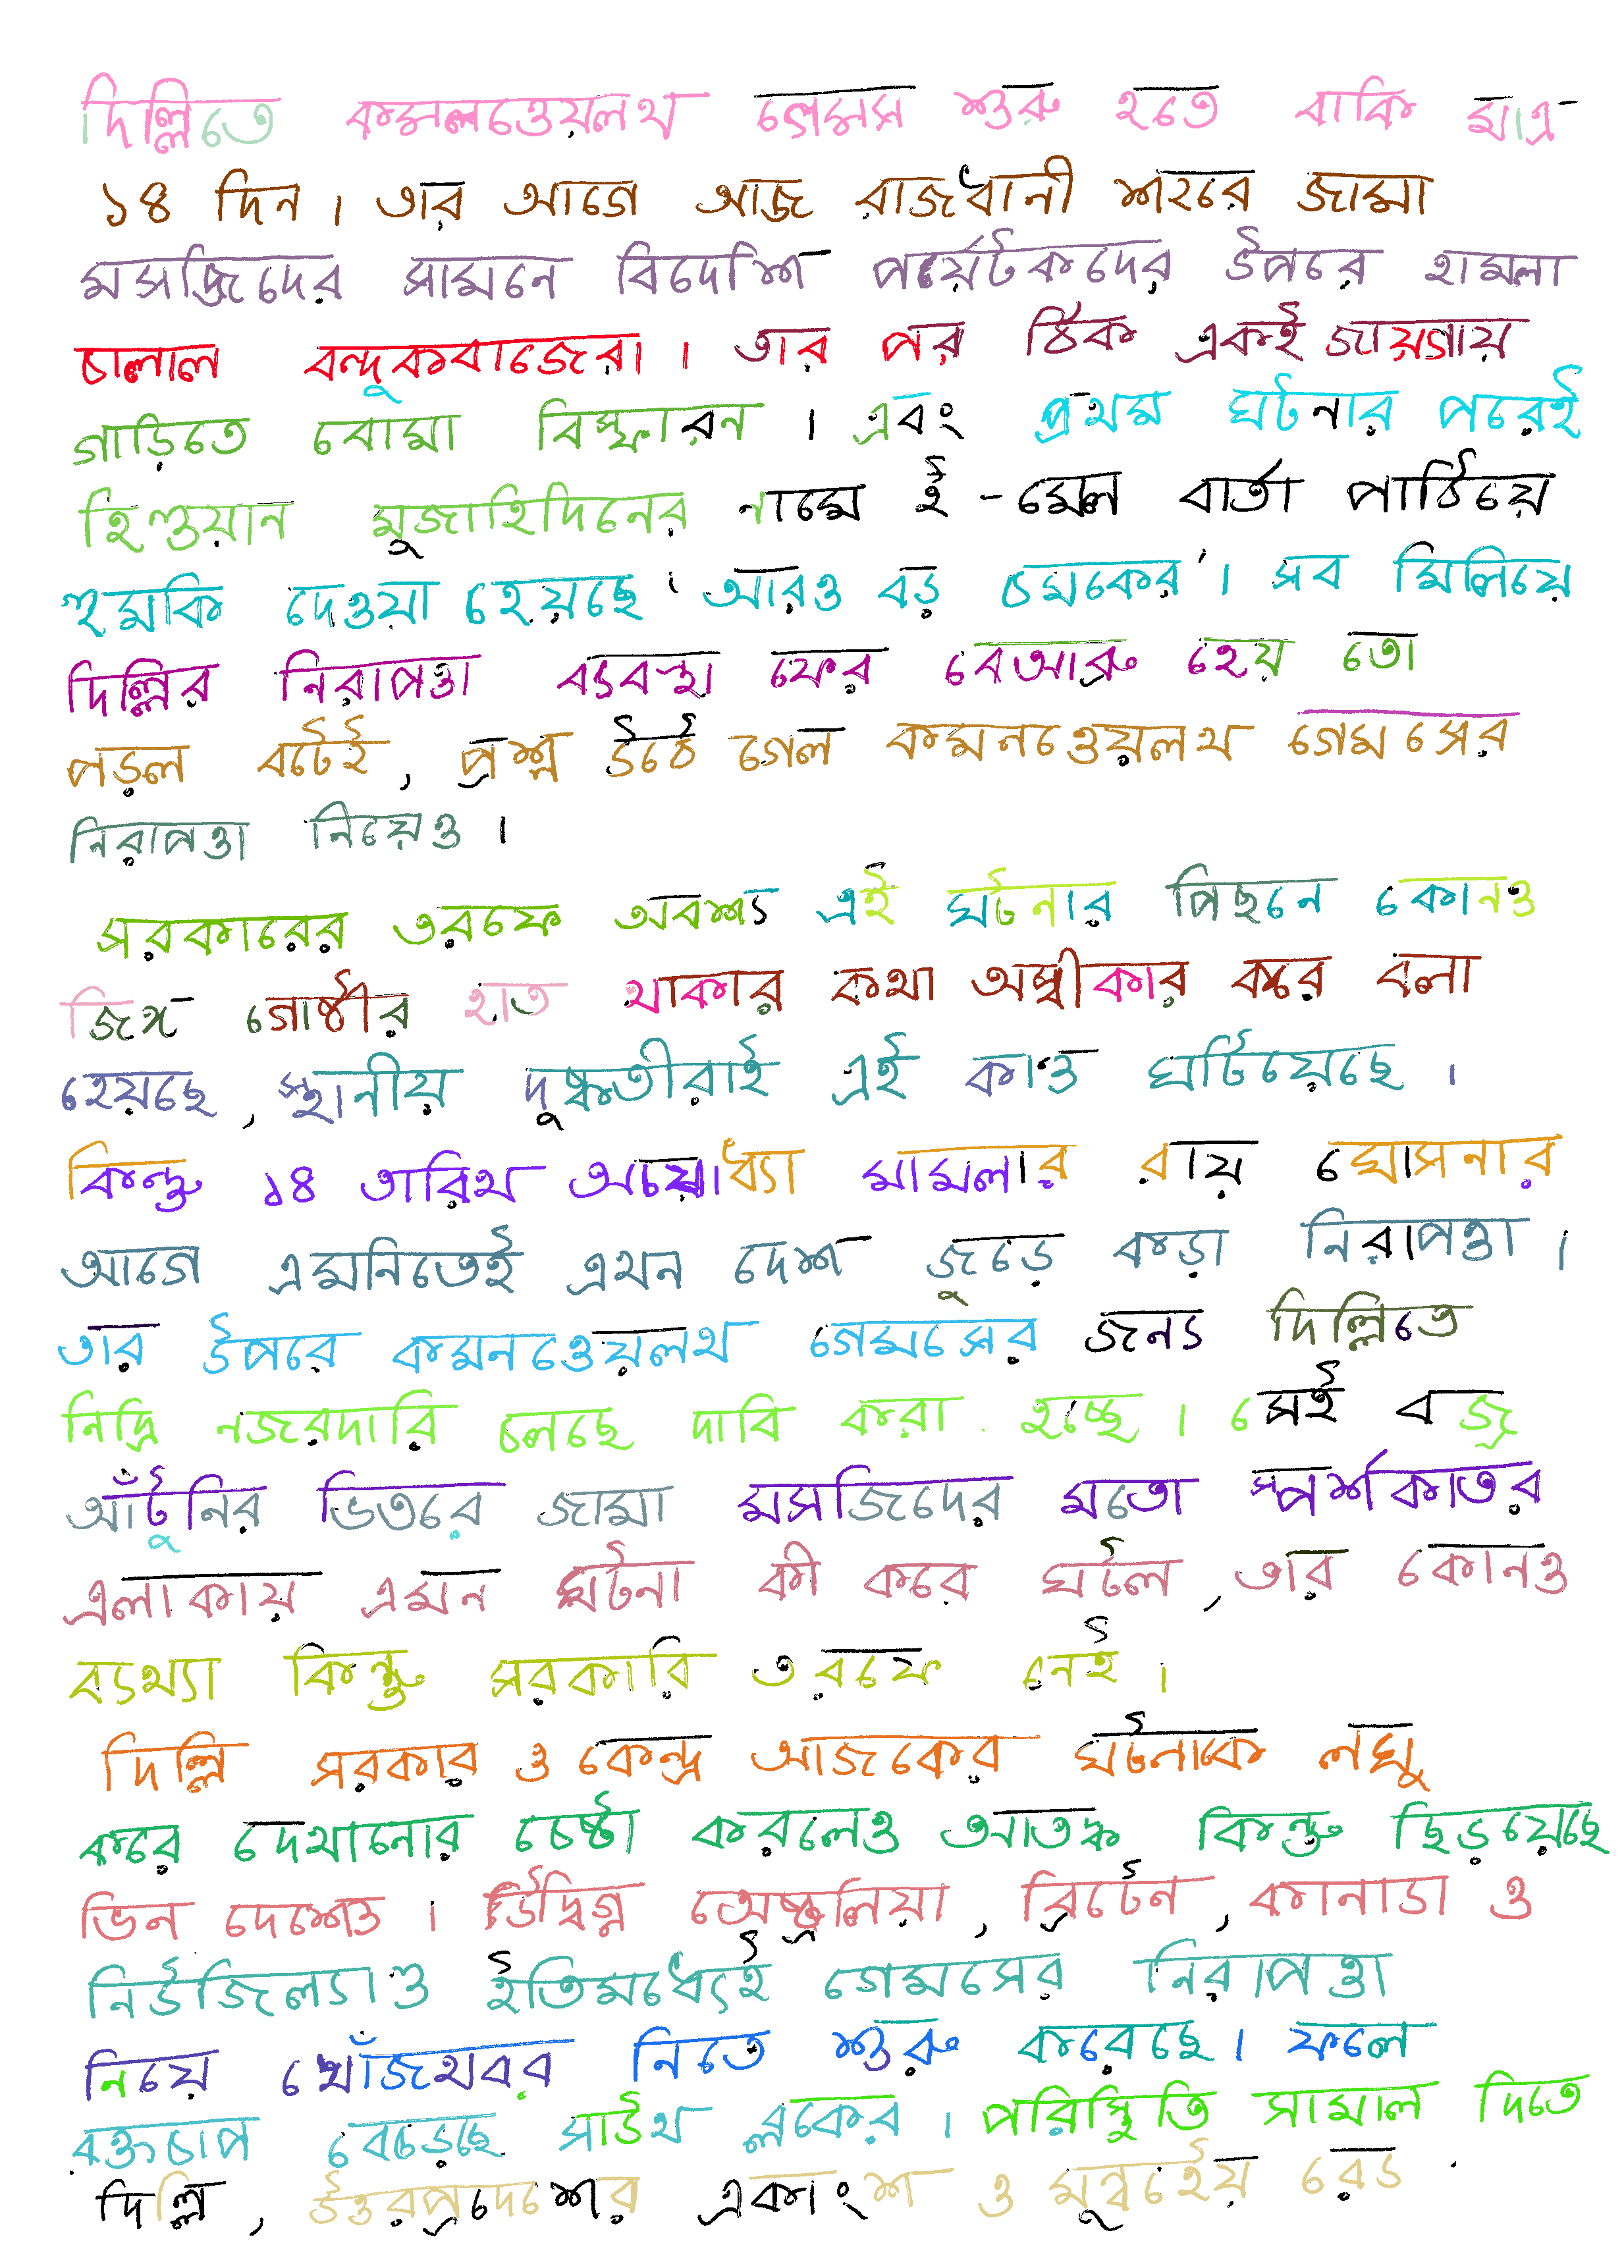 দিল্লিতে কমনওয়েলথ গেমস শুরু হতে বাকি মাত্র
১৪ দিন । তার আগে আজ রাজধানী শহরে জামা
মসজিদের সামনে বিদেশি পর্যেটকদের উপরে হামলা
চালাল বন্দুকবাজেরা । তার পর ঠিক একই জায়গায়
গাড়িতে বোমা বিস্ফারন । এবং প্রথম ঘটনার পরেই
হিণ্ডয়ান মুজাহিদিনের নামে ই-মেল বার্তা পাঠিয়ে
হুমকি দেওয়া হয়েছে 'আরও বড় চমকের' । সব মিলিয়ে
দিল্লির নিরাপত্তা ব্যবস্থা ফের বেআব্রু হয়ে তো
পড়ল বটেই, প্রশ্ন উঠে গেল কমনওয়েলথ গেমসের
নিরাপত্তা নিয়েও ।
সরকারের তরফে অবশ্য এই ঘটনার পিছনে কোনও
জঙ্গি গোষ্ঠীর হাত থাকার কথা অস্বীকার করে বলা
হয়েছে, স্থানীয় দুষ্কৃতীরাই এই কাণ্ড ঘটিয়েছে ।
কিন্তু ১৪ তারিখ অযোধ্যা মামলার রায় ঘোসনার
আগে এমনিতেই এখন দেশ জুড়ে কড়া নিরাপত্তা ।
তার উপরে কমনওয়েলথ গেমসের জন্য দিল্লিতে
নিদ্রি নজরদারি চলছে দাবি করা হচ্ছে । সেই বজ্র
আঁটুনির ভিতরে জামা মসজিদের মতো স্পর্শকাতর
এলাকায় এমন ঘটনা কী করে ঘটল, তার কোনও
ব্যখ্যা কিন্তু সরকারি তরফে নেই ।
দিল্লি সরকার ও কেন্দ্র আজকের ঘটনাকে লঘু
করে দেখানোর চেষ্টা করলেও আতঙ্ক কিন্তু ছড়িয়েছে
ভিন দেশেও । উদ্বিগ্ন অষ্ট্রেলিয়া, ব্রিটেন, কানাডা ও
নিউজিল্যাণ্ড ইতিমধ্যেই গেমসের নিরাপত্তা
নিয়ে খোঁজখবর নিতে শুরু করেছে । ফলে
রক্তচাপ বেড়েছে সাউথ ব্লকের । পরিস্থিতি সামাল দিতে
দিল্লি, উত্তরপ্রদেশের একাংশ ও মুম্বইয়ে রেড